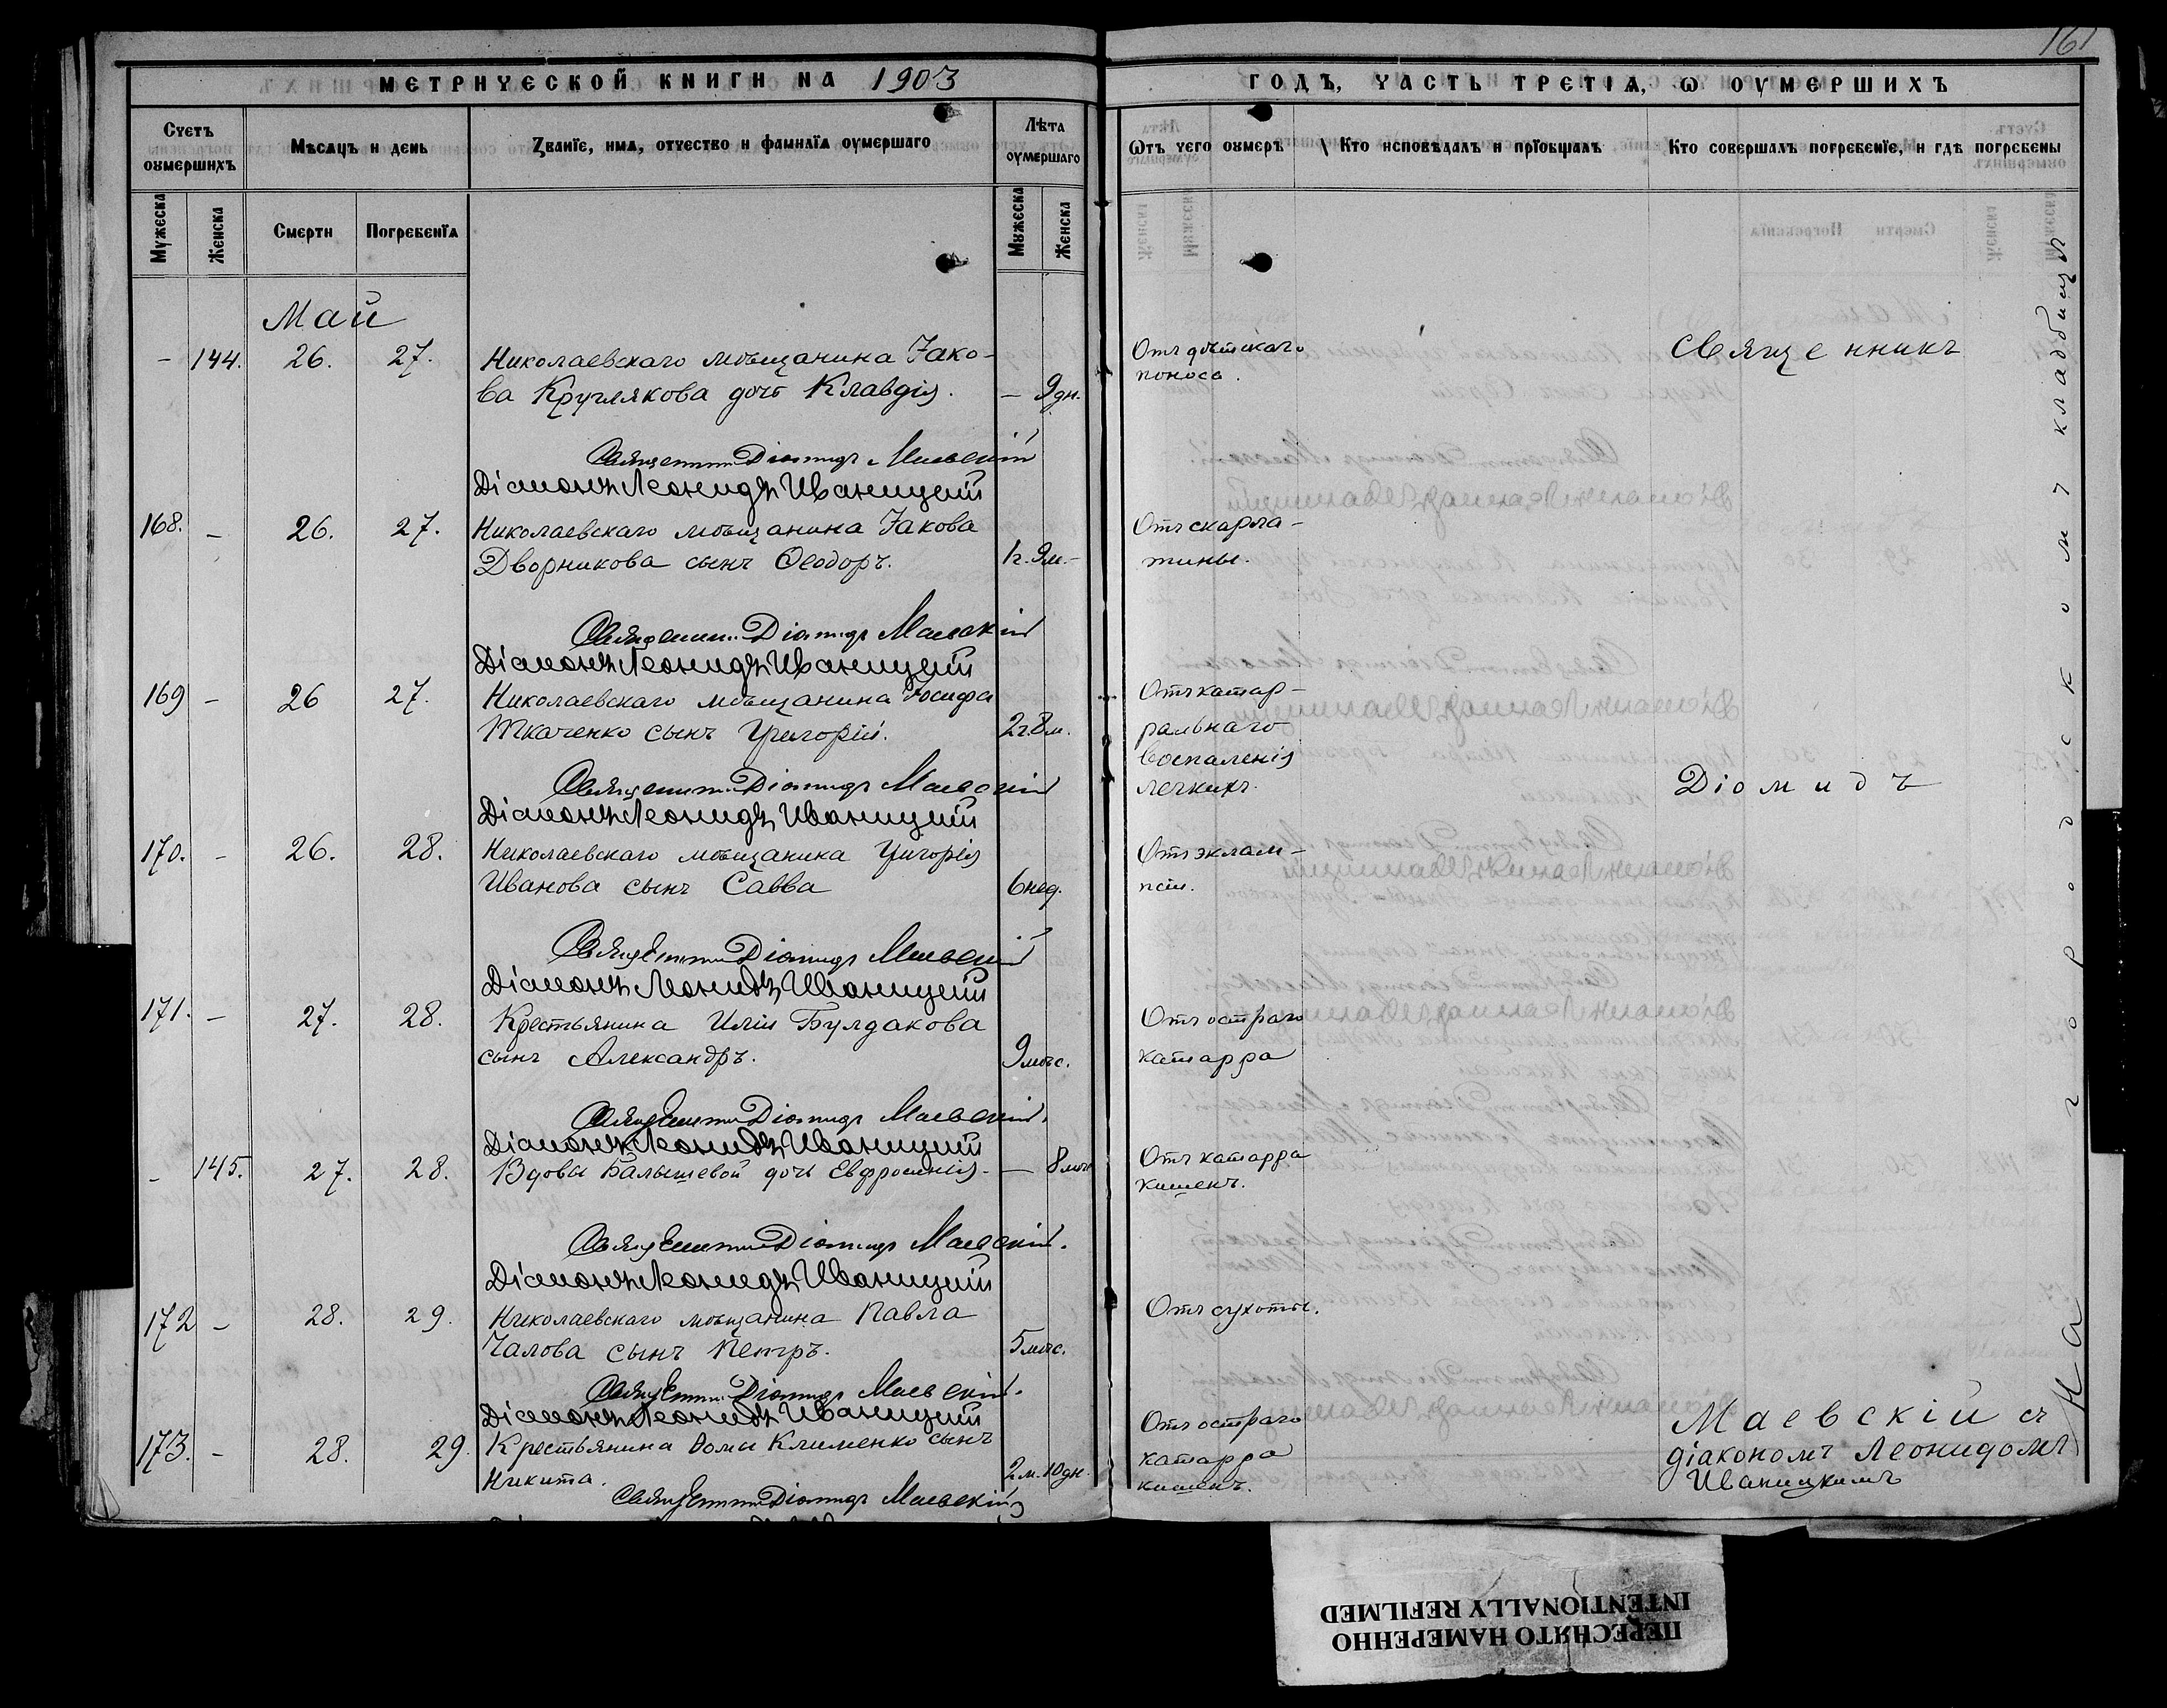 161
МЕТРИЧЕСКОЙ КНИГИ НА 1903
ГОДЪ, ЧАСТЬ ТРЕТІѦ, Ѡ ОУМЕРШИХЪ
Счетъ оумершихъ
Мѣсѧцъ и день
Званїе, имѧ, отчество и фамилїѧ оумершаго
Лѣта оумершаго
Ѿтъ чего оумеръ
Кто исповѣдалъ и прїобщалъ
Кто совершалъ погребенїе, и гдѣ погребены
Мужеска
Женска
Смерти
Погребенїѧ
Мужеска
Женска
Май
– 144. 26. 27. Николаевскаго мѣщанина Іако-
ва Круглякова дочь Клавдія. – 9дн.
Отъ дѣтскаго
поноса.
Священникъ Діомидъ Маевскій
Діаконъ Леонидъ Иваницкій
168. – 26. 27. Николаевскаго мѣщанина Іакова
Дворникова сынъ Ѳеодоръ. 1г. 9м. –
Отъ скарла-
тины.
Священникъ Діомидъ Маевскій
Діаконъ Леонидъ Иваницкій
169 – 26 27. Николаевскаго мѣщанина Іосифа
Ткаченко сынъ Григорій. 2г. 8м.
Отъ катар-
ральнаго
воспаленія
легкихъ.
Священникъ Діомидъ Маевскій
Діаконъ Леонидъ Иваницкій
170. – 26. 28. Николаевскаго мѣщанина Григорія
Иванова сынъ Савва 6нед.
Отъ эклам-
псіи.
Священникъ Діомидъ Маевскій
Діаконъ Леонидъ Иваницкій
171. – 27. 28. Крестьянина Иліи Булдакова
сынъ Александръ. 9мѣс.
Отъ остраго
катарра
Священникъ Діомидъ Маевскій.
Діаконъ Леонидъ Иваницкій
– 145. 27. 28. Вдовы Балышевой дочь Евфросинія. – 8мѣс
Отъ катарра
кишекъ.
Священникъ Діомидъ Маевскій.
Діаконъ Леонидъ Иваницкій
172 – 28. 29. Николаевскаго мѣщанина Павла
Чалова сынъ Петръ. 5мѣс.
Отъ сухоты.
Священникъ Діомидъ Маевскій.
Діаконъ Леонидъ Иваницкій
173. – 28. 29. Крестьянина Ѳомы Клименко сынъ
Никита. 2м. 10дн.
Отъ остраго
катарра
кишекъ.
Священникъ Діомидъ Маевскій
Священникъ
Діомидъ
Маевскій съ
діакономъ Леонидомъ
Иваницкимъ
На городскомъ кладбищѣ
ПЕРЕСНЯТО НАМЕРЕННО
INTENTIONALLY REFILMED